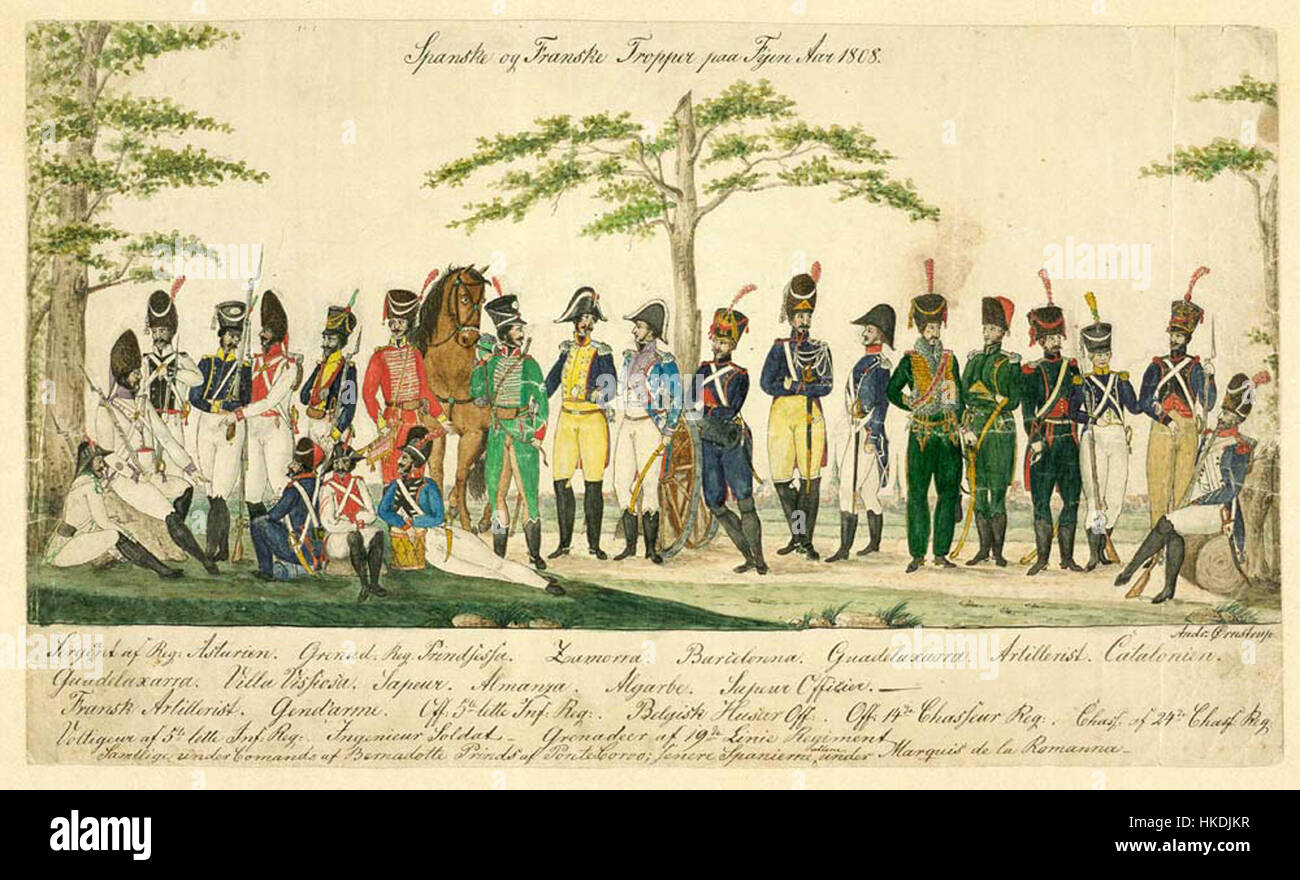 Spanske og Franske Tropper paa Fyen Aar 1808.
Andr. Ørnstrup
Sergent af Reg: Asturien. Grenad. Reg. Prindsessa. Zamorra. Barcelonna. Guadelaxarra. Artillerist. Catalonien.
Guadelaxarra. Villa Vissiosa. Sapeur. Almanza. Algarbe. Sapeur Offizier. —
Fransk Artillerist. Gend'arme. Off: 5te lette Inf. Reg:. Belgisk Husar Off:. Off: 14de Chasseur Reg:. Chass. af 24de Chass. Reg.
Voltigeur af 5te lette Inf. Reg:. Ingenieur Soldat — Grenadeer af 19de Linie Regiment
Samtlige under Comando af Bernadotte Prinds af Ponte Corvo; senere Spanierne under Marquis de la Romanna —
alamy
alamy stock photo
HKDJKR
www.alamy.com